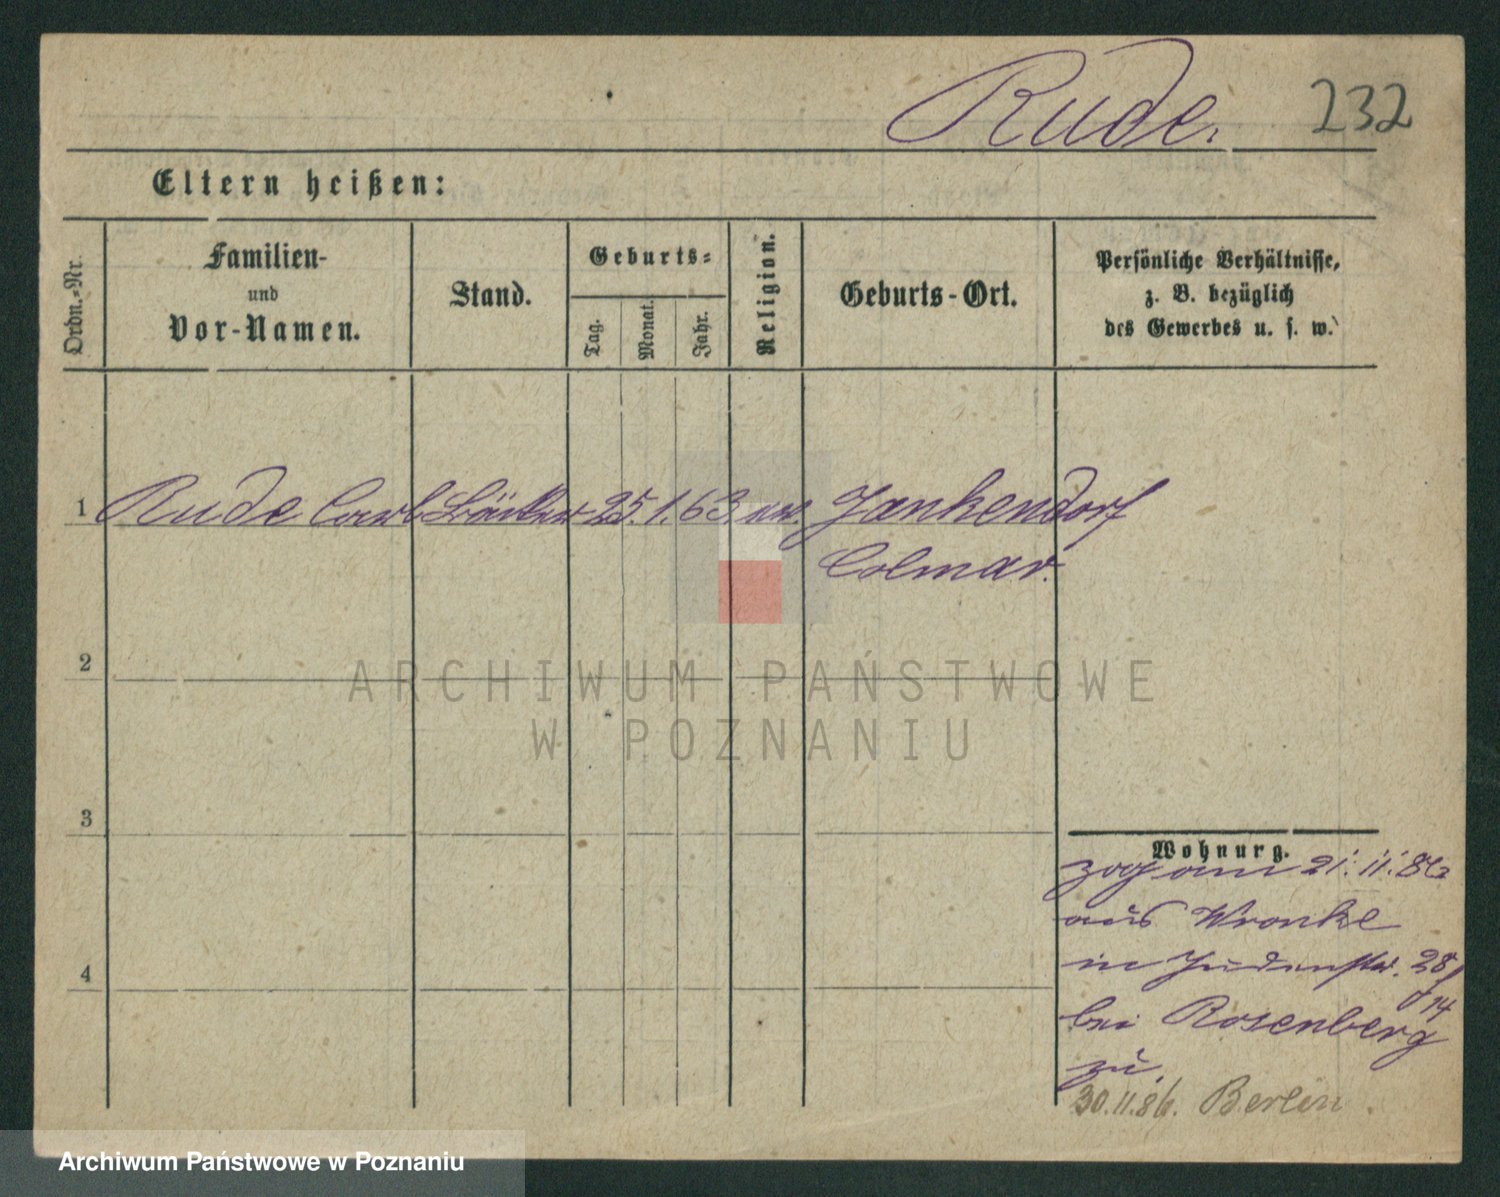 Rude.
232
Eltern heißen:
Ordn.-Nr.
Familien-
und
Vor-Namen.
Stand.
Geburts-
Tag.
Monat.
Jahr.
Religion.
Geburts-Ort.
Persönliche Verhältnisse,
z. B. bezüglich
des Gewerbes u. s. w.
1 Rude Carl Bäcker 25. 1. 63. Jankendorf
Colmar.
2
3
4
Wohnung.
zog am 21. 11. 86
aus Wronke
in Judenstr. 28
bei Rosenberg
zu.
30.11.86. Berlin.
ARCHIWUM PAŃSTWOWE
W POZNANIU
Archiwum Państwowe w Poznaniu